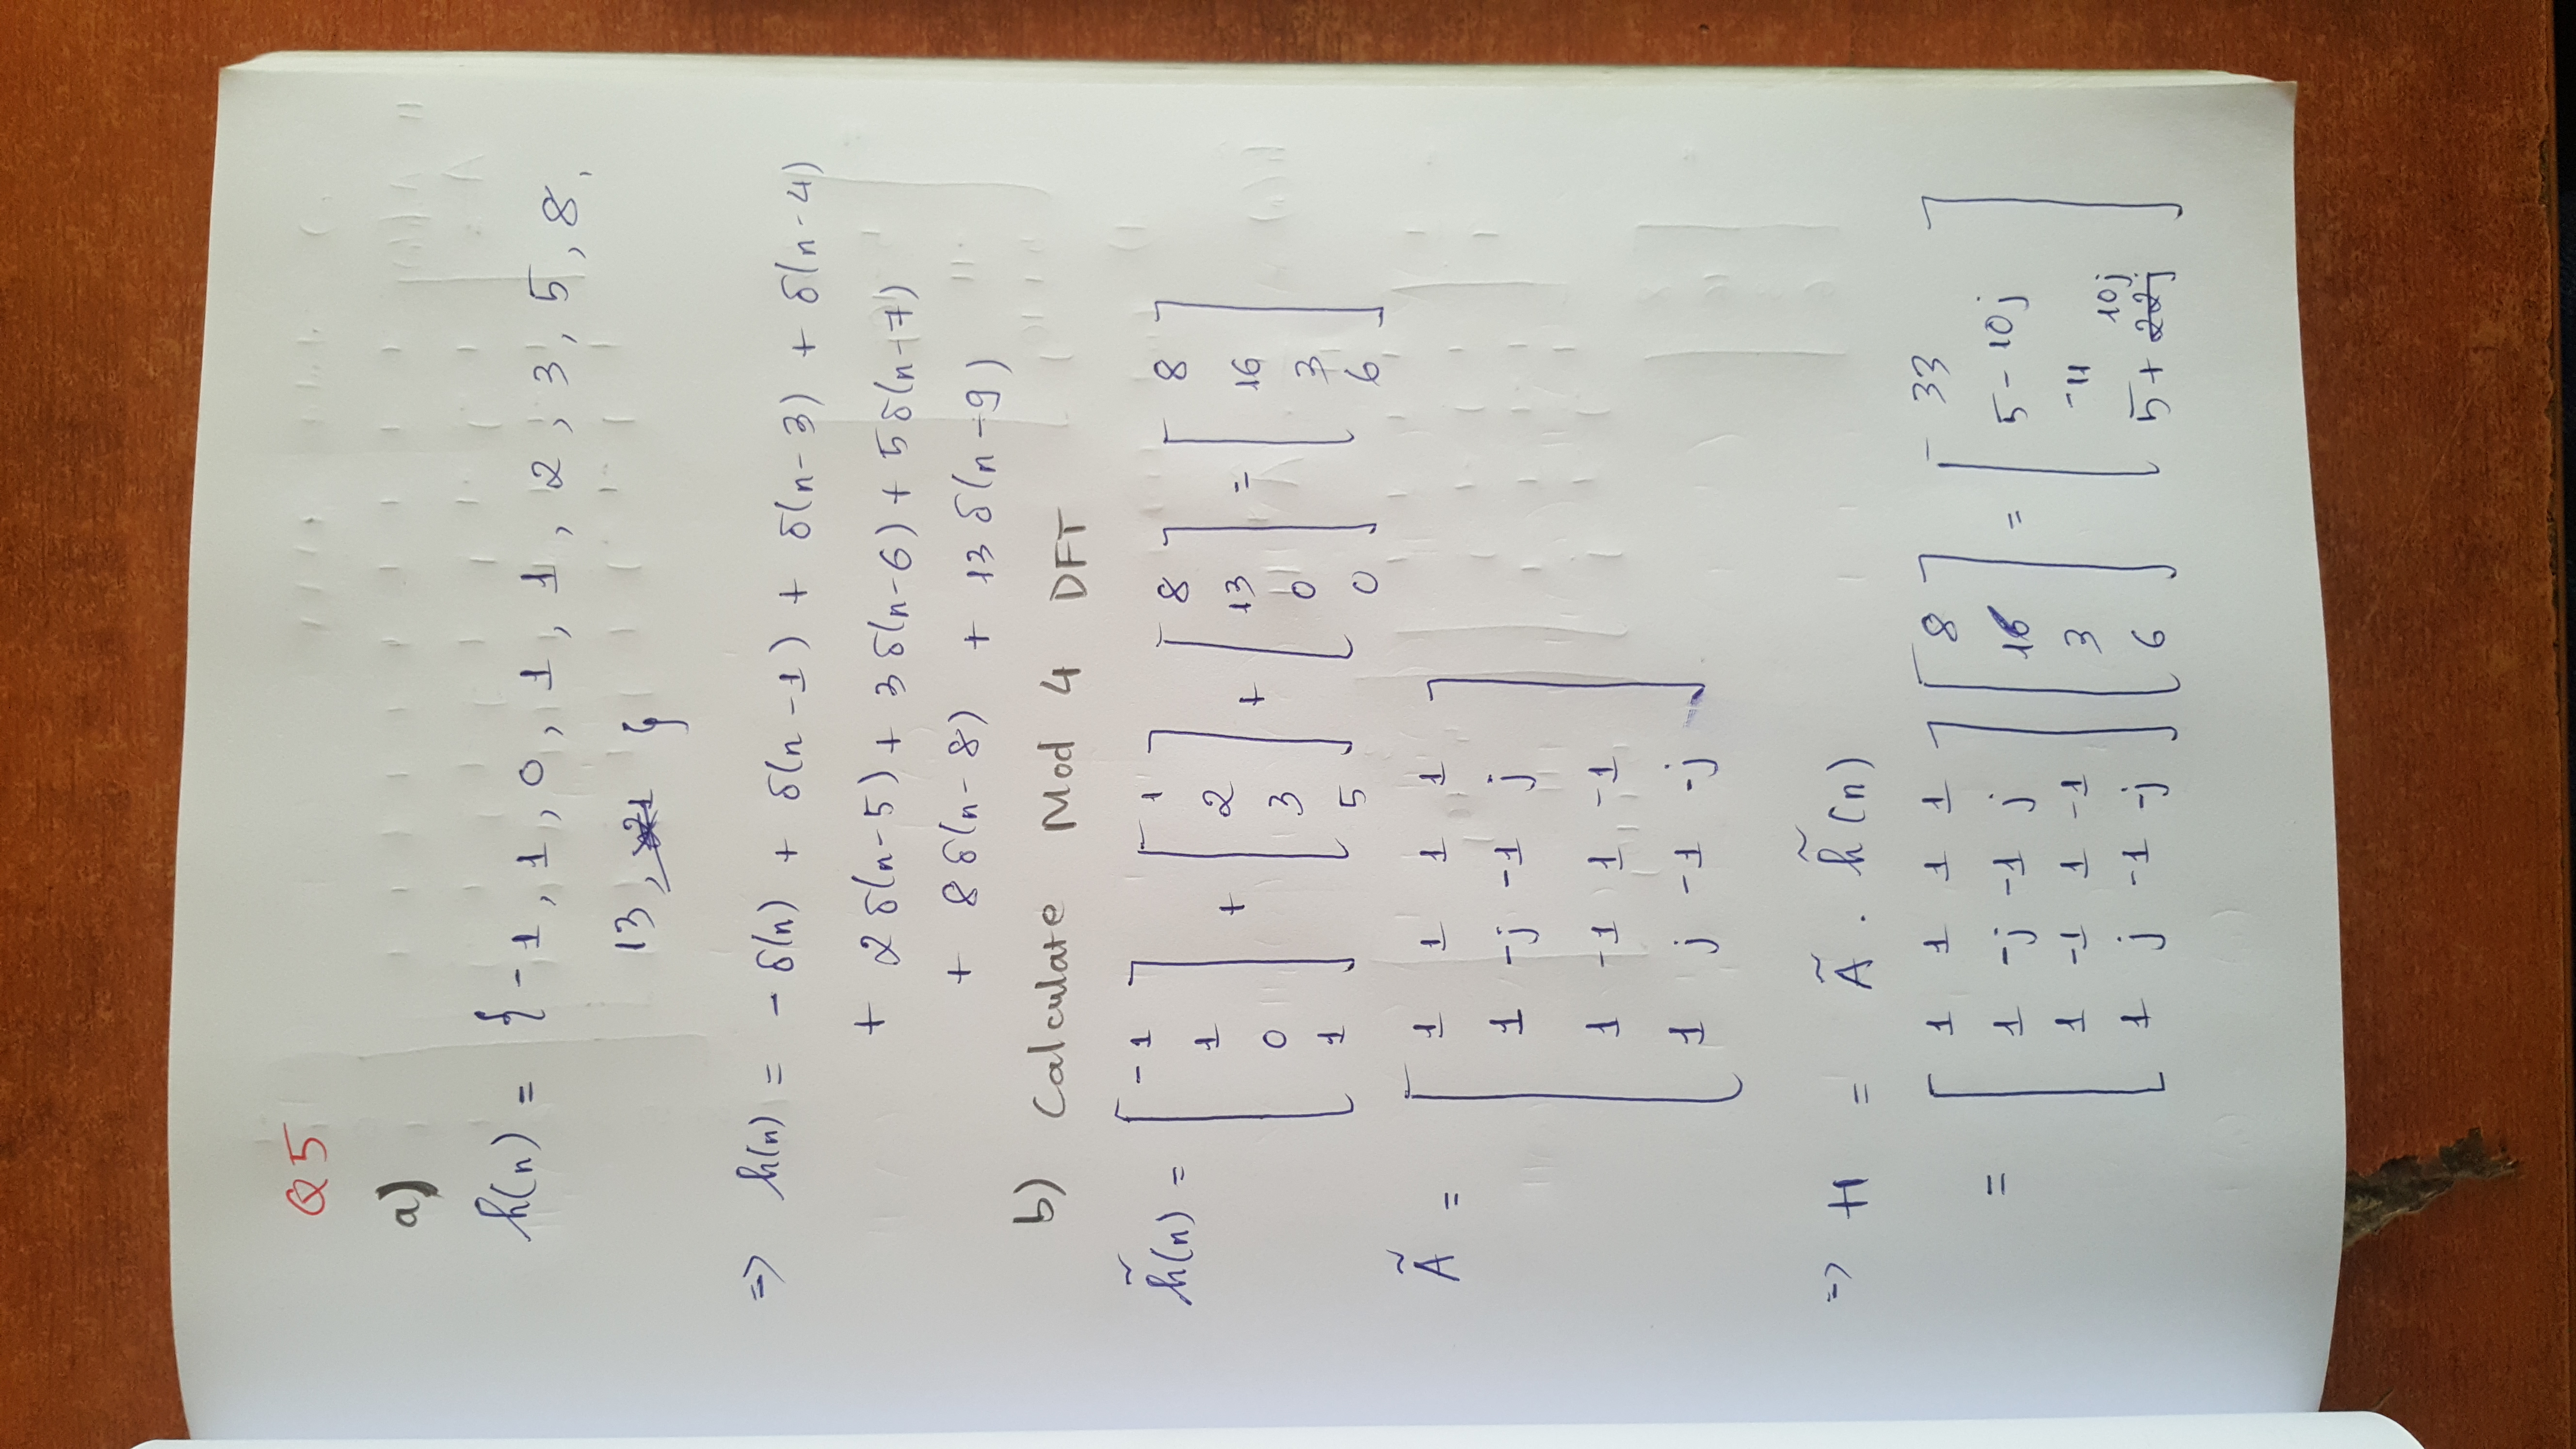 Q5
a)
h(n) = {-1, 1, 0, 1, 1, 2, 3, 5, 8,
13, 21 }
=> h(n) = - δ(n) + δ(n-1) + δ(n-3) + δ(n-4)
+ 2δ(n-5) + 3δ(n-6) + 5δ(n-7)
+ 8δ(n-8) + 13δ(n-9)
b) Calculate Mod 4 DFT
h̃(n) = [-1 1 0 1] + [1 2 3 5] + [8 13 0 0] = [8 16 3 6]
Ã = [
1 1 1 1
1 -j -1 j
1 -1 1 -1
1 j -1 -j
]
=> H = Ã . h̃(n)
= [
1 1 1 1
1 -j -1 j
1 -1 1 -1
1 j -1 -j
] [8 16 3 6] = [
33
5-10j
-11
10j
5+22j
]